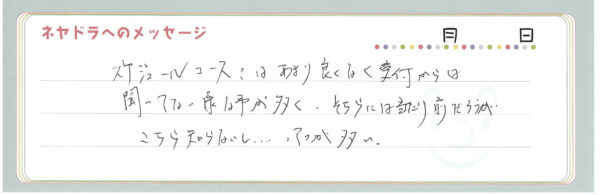 ネヤドラへのメッセージ
月 日
スケジュールコース:はあまり良くなく受付からは
聞いてない事が多く、そちらには当たり前だろうが
こちら知らないし....、が多い。